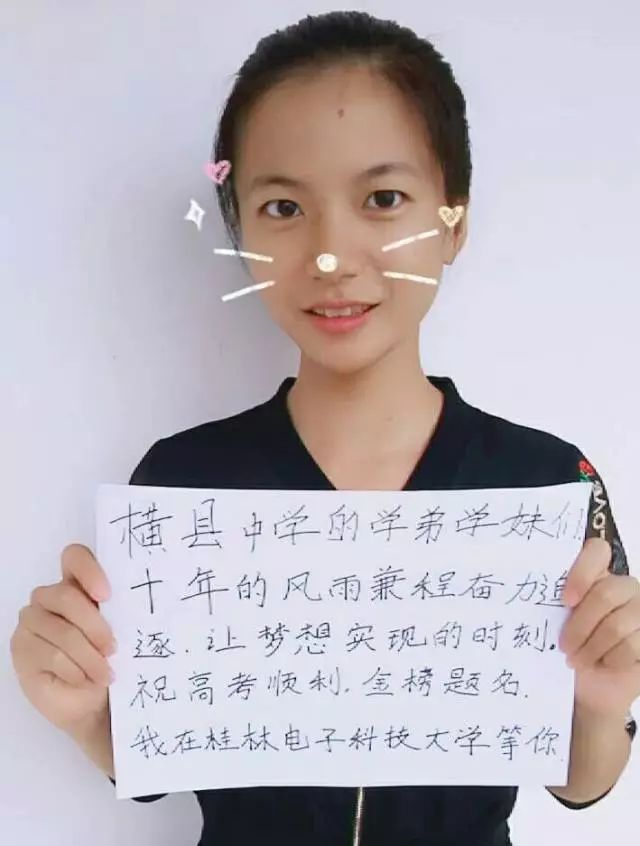 横县中学的学弟学妹们
十年的风雨兼程奋力追
逐.让梦想实现的时刻.
祝高考顺利.金榜题名.
我在桂林电子科技大学等你.